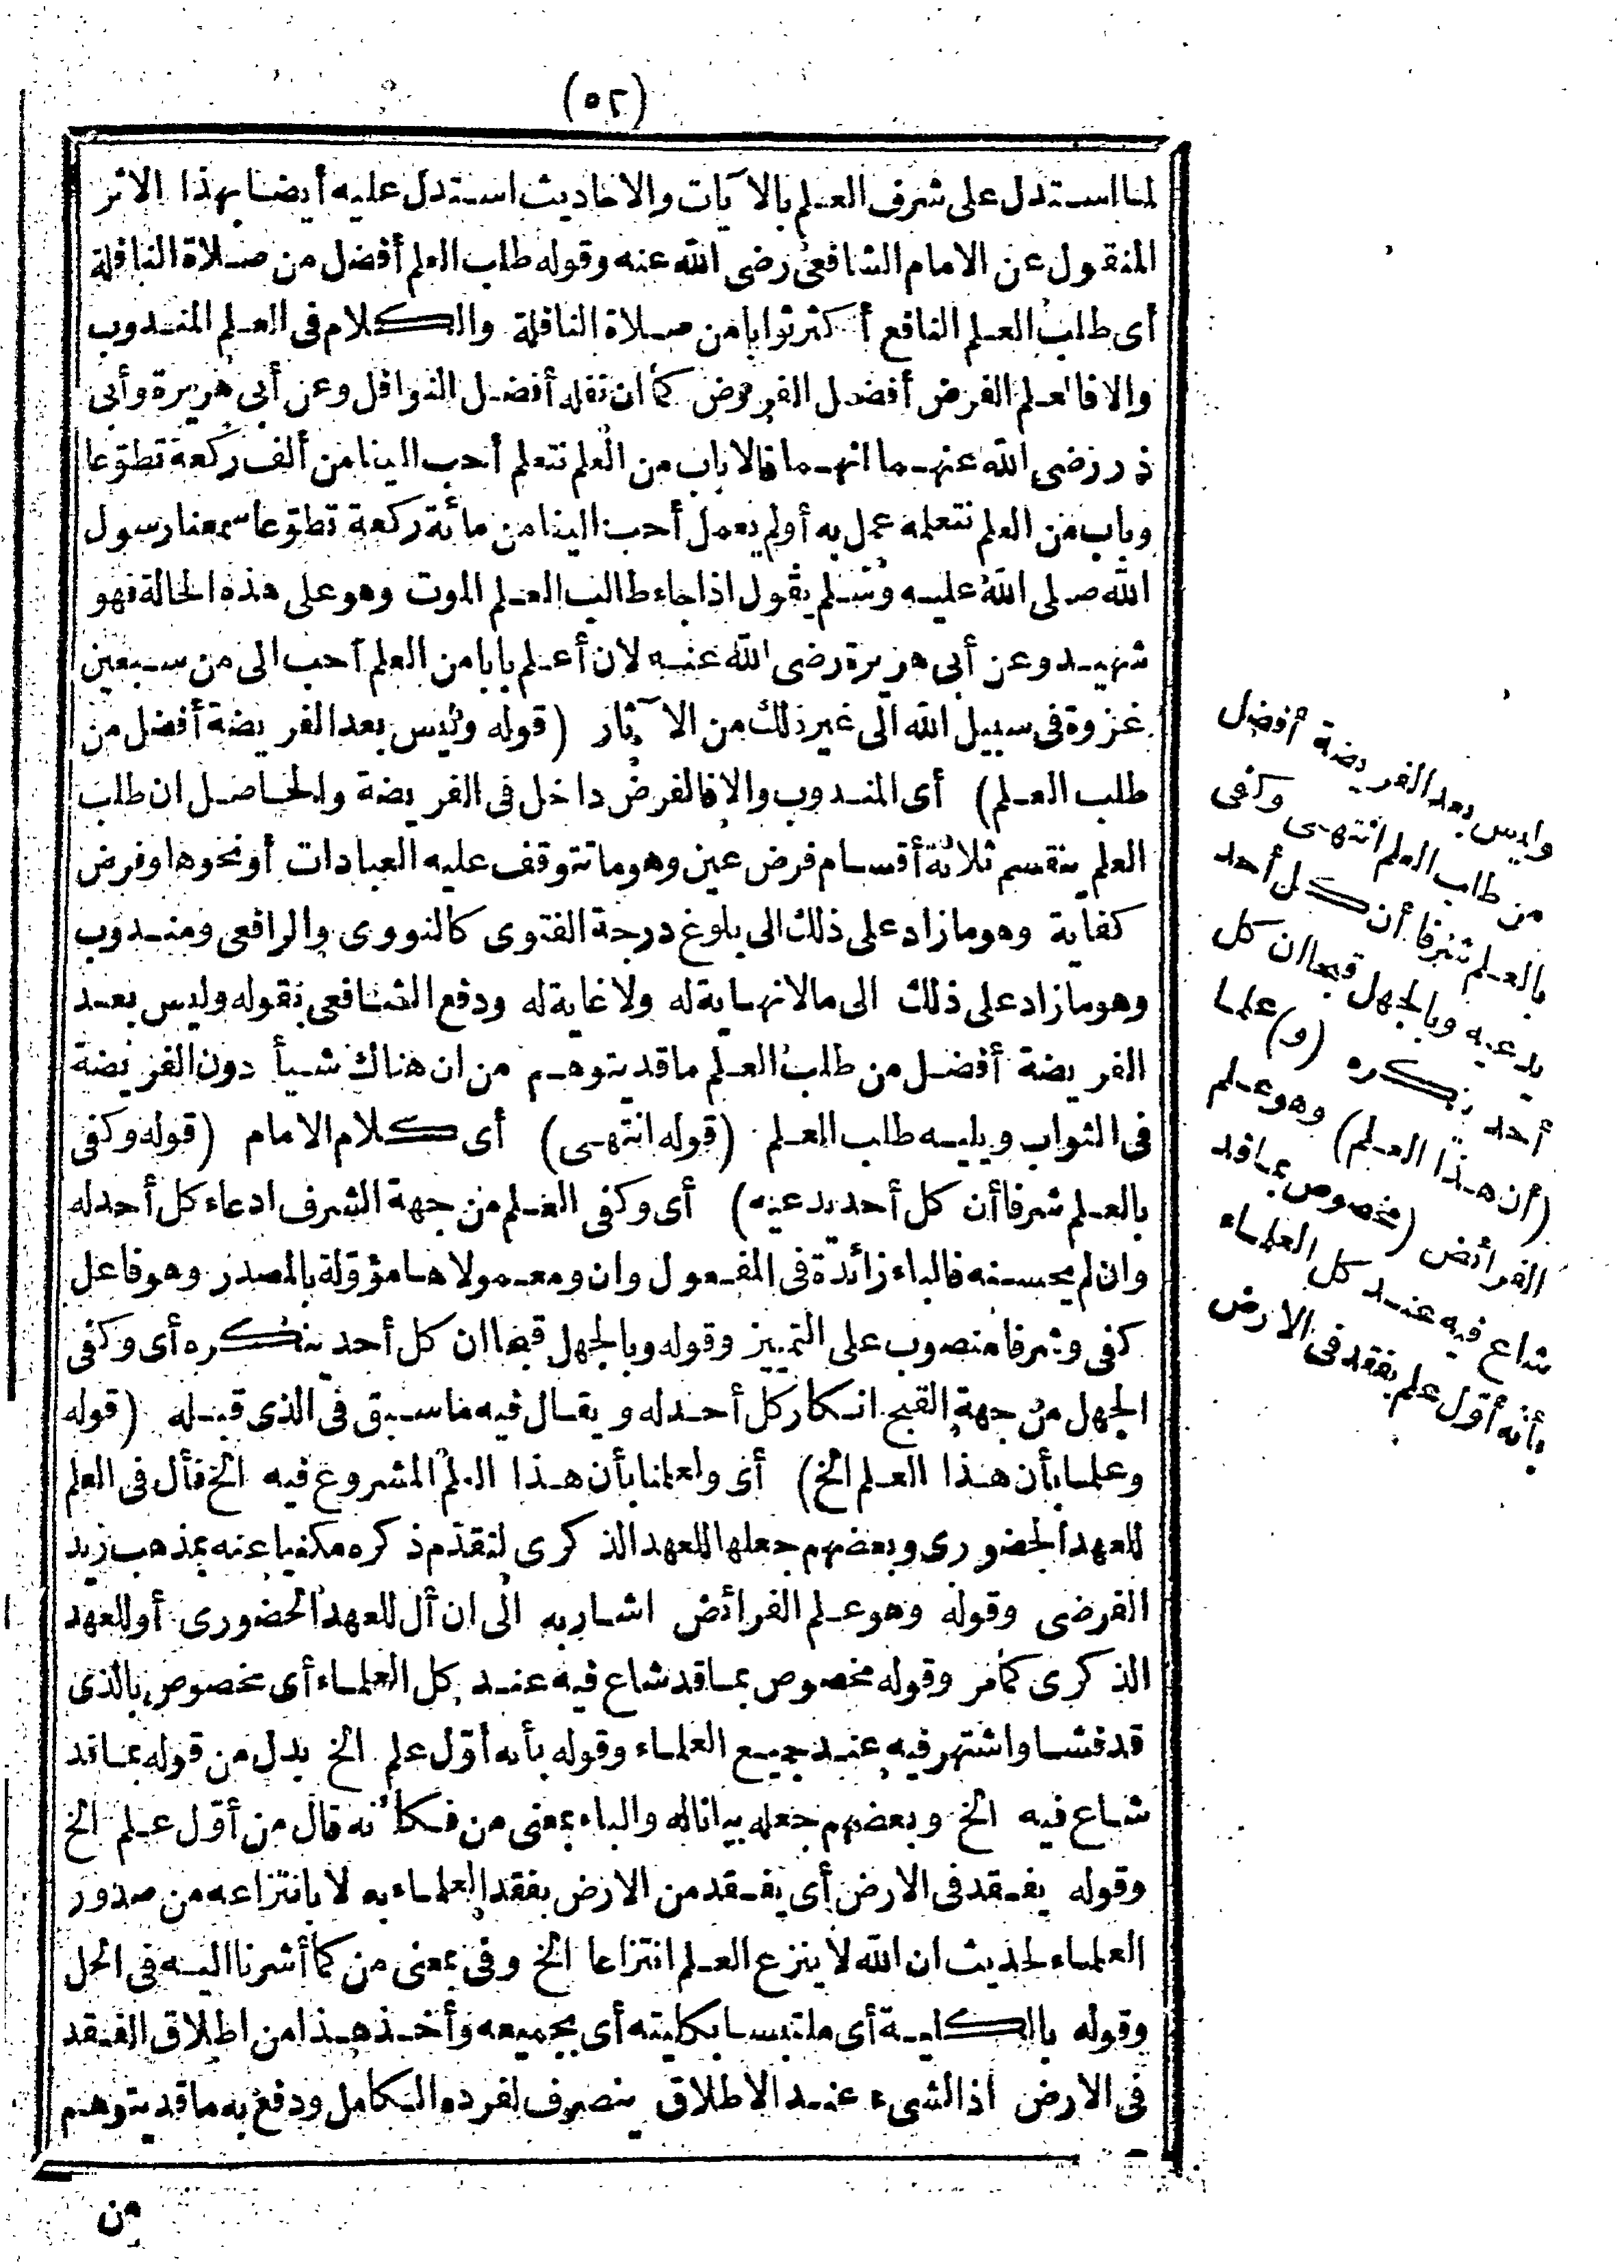 (٥٢)
لما استدل على شرف العلم بالآيات والاحاديث استدل عليه أيضا بهذا الاثر
المنقول عن الامام الشافعى رضى الله عنه وقوله طلب العلم أفضل من صلاة النافلة
أى طلب العلم النافع أكثر ثوابا من صلاة النافلة والكلام فى العلم المندوب
والا فالعلم الفرض أفضل الفروض كما ان نفله أفضل النوافل وعن أبى هريرة وأبى
ذر رضى الله عنهما انهما قالا باب من العلم نتعلم أحب الينا من ألف ركعة تطوّعا
وباب من العلم نتعلمه عمل به أولم يعمل أحب الينا من مائة ركعة تطوّعا سمعنا رسول
الله صلى الله عليه وسلم يقول اذا جاء طالب العلم الموت وهو على هذه الحالة فهو
شهيد وعن أبى هريرة رضى الله عنه لان أعلم بابا من العلم أحب الى من سبعين
غزوة فى سبيل الله الى غير ذلك من الآثار (قوله وليس بعد الفريضة أفضل من
طلب العلم) أى المندوب والا فالفرض داخل فى الفريضة والحاصل ان طلب
العلم ينقسم ثلاثة أقسام فرض عين وهو ما تتوقف عليه العبادات أو نحوها وفرض
كفاية وهو ما زاد على ذلك الى بلوغ درجة الفتوى كالنووى والرافعى ومندوب
وهو ما زاد على ذلك الى مالانهاية له ولا غاية له ودفع الشافعى بقوله وليس بعد
الفريضة أفضل من طلب العلم ما قد يتوهم من ان هناك شيأ دون الفريضة
فى الثواب ويليه طلب العلم (قوله انتهى) أى كلام الامام (قوله وكفى
بالعلم شرفا أن كل أحد يدعيه) أى وكفى العلم من جهة الشرف ادعاء كل أحد له
وان لم يحسنه فالباء زائدة فى المفعول وان ومعمولاها مؤوّلة بالمصدر وهو فاعل
كفى وشرفا منصوب على التمييز وقوله وبالجهل قبحا ان كل أحد ينكره أى وكفى
الجهل من جهة القبح انكار كل أحد له ويقال فيه ما سبق فى الذى قبله (قوله
وعلما بأن هذا العلم الخ) أى ولعلمنا بأن هذا العلم المشروع فيه الخ فأل فى العلم
للعهد الحضورى وبعضهم جعلها للعهد الذكرى لتقدّم ذكره مكنيا عنه بمذهب زيد
الفرضى وقوله وهو علم الفرائض اشار به الى ان أل للعهد الحضورى أو للعهد
الذكرى كما مر وقوله مخصوص بما قد شاع فيه عند كل العلماء أى مخصوص بالذى
قد فشا واشتهر فيه عند جميع العلماء وقوله بأنه أوّل علم الخ بدل من قوله بما قد
شاع فيه الخ وبعضهم جعله بيانا له والباء بمعنى من فكأنه قال من أوّل علم الخ
وقوله يفقد فى الارض أى يفقد من الارض بفقد العلماء به لا بانتزاعه من صدور
العلماء لحديث ان الله لا ينزع العلم انتزاعا الخ وفى بمعنى من كما أشرنا اليه فى الحل
وقوله بالكلية أى ملتبسا بكليته أى بجميعه وأخذ هذا من اطلاق الفقد
فى الارض اذ الشىء عند الاطلاق ينصرف لفرده الكامل ودفع به ما قد يتوهم
من
وليس بعد الفريضة أفضل
من طلب العلم انتهى وكفى
بالعلم شرفا أن كل أحد
يدعيه وبالجهل قبحا ان كل
أحد ينكره (و) علما
(أن هذا العلم) وهو علم
الفرائض (مخصوص بما قد
شاع فيه عند كل العلماء
بأنه أوّل علم يفقد فى الارض